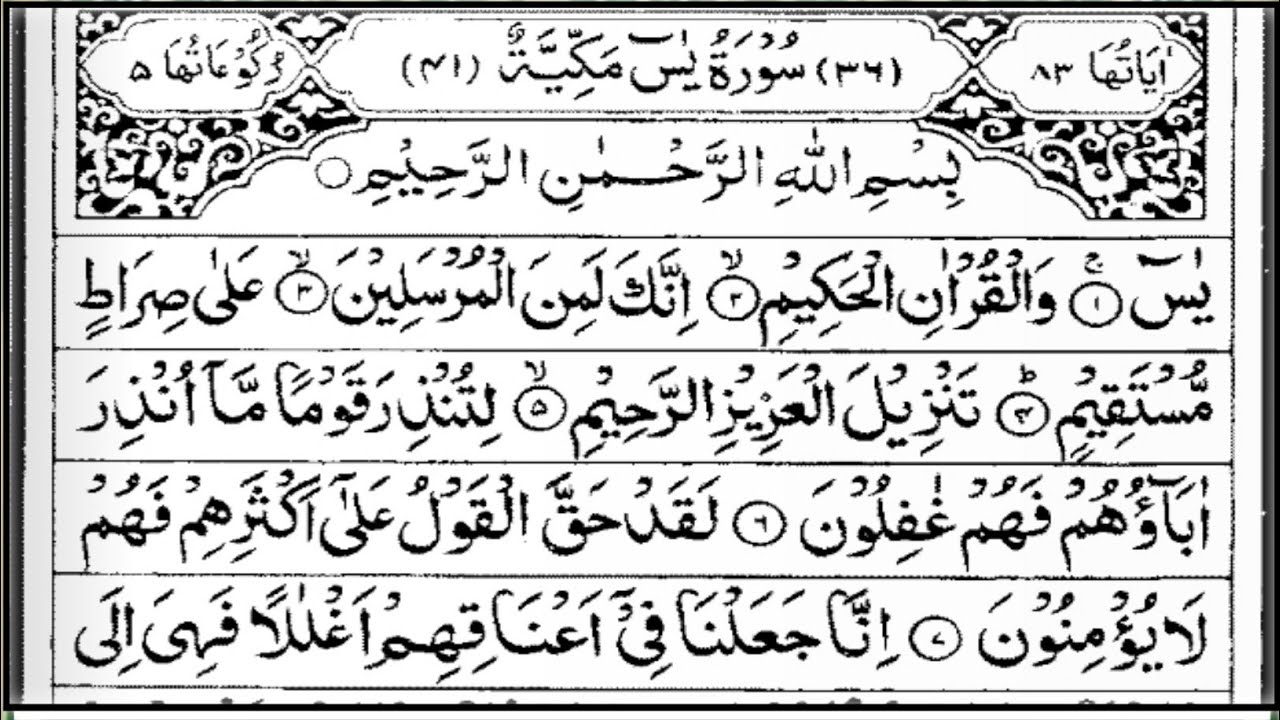 اٰيَاتُهَا ٨٣ (٣٦) سُوْرَةُ يٰسٓ مَكِّيَّةٌ (٤١) رُكُوْعَاتُهَا ٥
بِسْمِ اللّٰهِ الرَّحْمٰنِ الرَّحِيْمِ
يٰسٓ ۚ ١ وَالْقُرْاٰنِ الْحَكِيْمِ ۙ ٢ اِنَّكَ لَمِنَ الْمُرْسَلِيْنَ ۙ ٣ عَلٰى صِرَاطٍ
مُّسْتَقِيْمٍ ؕ ٤ تَنْزِيْلَ الْعَزِيْزِ الرَّحِيْمِ ۙ ٥ لِتُنْذِرَ قَوْمًا مَّاۤ اُنْذِرَ
اٰبَآؤُهُمْ فَهُمْ غٰفِلُوْنَ ٦ لَقَدْ حَقَّ الْقَوْلُ عَلٰۤى اَكْثَرِهِمْ فَهُمْ
لَا يُؤْمِنُوْنَ ٧ اِنَّا جَعَلْنَا فِيْۤ اَعْنَاقِهِمْ اَغْلٰلًا فَهِىَ اِلَى